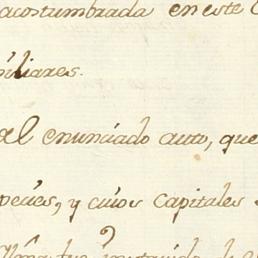 acostumbrada en este
iliares.
al enunciado auto, que
pecies, y cuios capitales